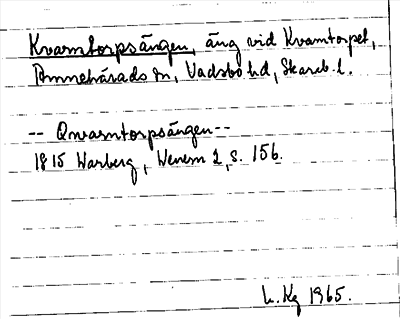 Kvarntorpsängen, äng vid Kvarntorpet,
Amnehärads sn, Vadsbo hd, Skarab. l.
-- Qvarntorpsängen --
1815 Warberg, Wenern 1, s. 156.
L. Kg 1965.